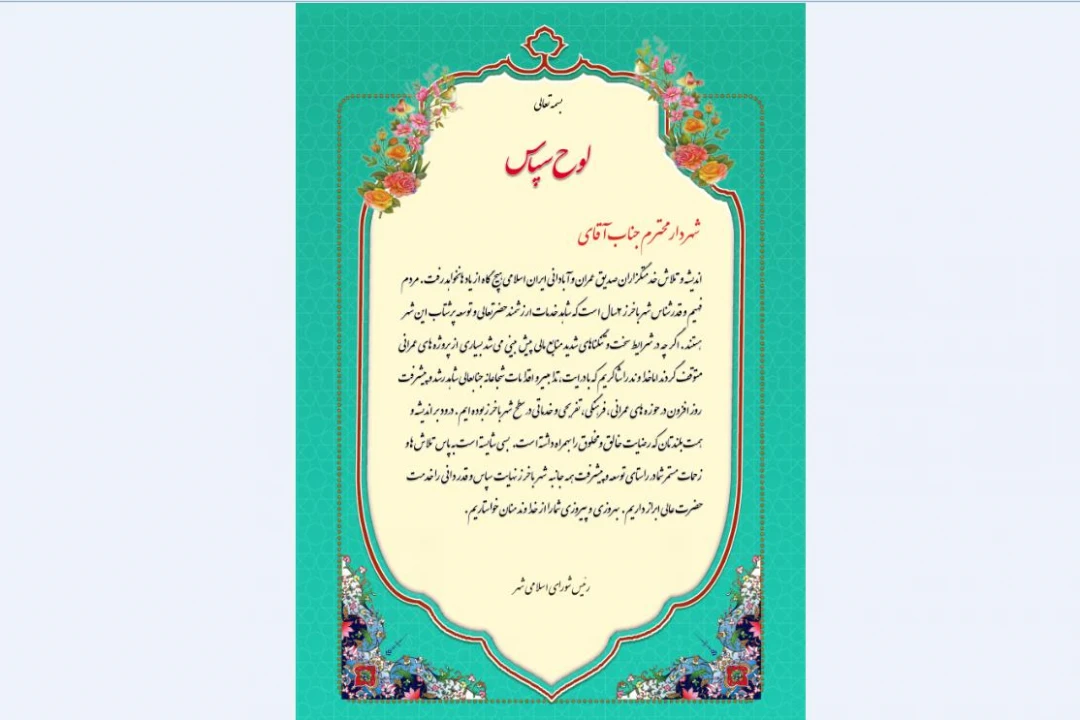 بسمه تعالی
لوح سپاس
شهردار محترم جناب آقای
اندیشه و تلاش خدمتگزاران صدیق عمران و آبادانی ایران اسلامی هیچ گاه از یادها نخواهد رفت. مردم
فهیم و قدرشناس شهر باخرز ۲سال است که شاهد خدمات ارزشمند حضرتعالی و توسعه پرشتاب این شهر
هستند. اگر چه در شرایط سخت و تنگناهای شدید منابع مالی پیش بینی می شد بسیاری از پروژه های عمرانی
متوقف گردند اما خداوند را شاکریم که با درایت، تدابیر و اقدامات شجاعانه جنابعالی شاهد رشد و پیشرفت
روز افزون در حوزه های عمرانی، فرهنگی، تفریحی و خدماتی در سطح شهر باخرز بوده ایم. درود بر اندیشه و
همت بلندتان که رضایت خالق و مخلوق را بهمراه داشته است. بسی شایسته است به پاس تلاش ها و
زحمات مستمر شما در راستای توسعه و پیشرفت همه جانبه شهر باخرز نهایت سپاس و قدردانی را خدمت
حضرت عالی ابراز داریم. بهروزی و پیروزی شما را از خداوند منان خواستاریم.
رئیس شورای اسلامی شهر